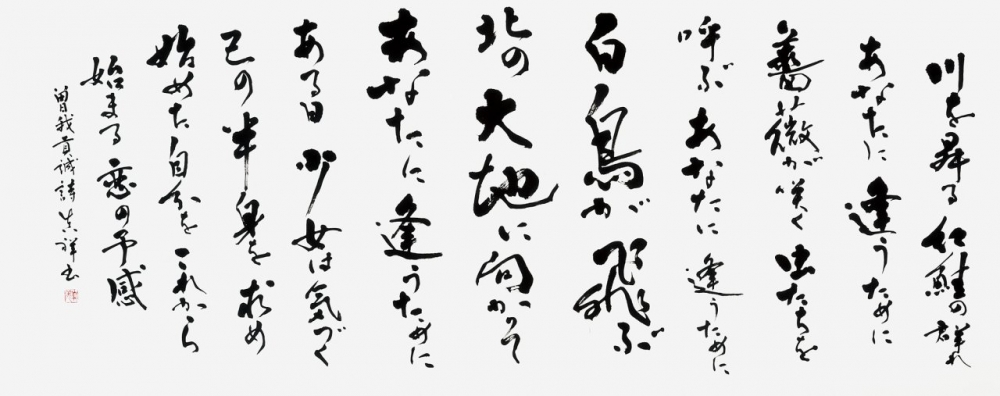 川を昇る 紅鮭の群れ
あなたに 逢うために
薔薇が咲く 虫たちを
呼ぶ あなたに 逢うために
白鳥が 飛ぶ
北の大地に向かって
あなたに 逢うために
ある日 少女は気づく
己の半身を 求め
始めた自分を これから
始まる 恋の予感
曽我貢誠詩 真祥書